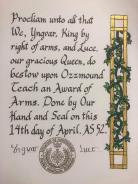 Procliam unto all that
We, Yngvar, King by
right of arms, and Luce,
our gracious Queen, do
bestow upon Ozzmound
Teach an Award of
Arms. Done by Our
Hand and Seal on this
14th day of April, AS 52.
Yngvar Luce